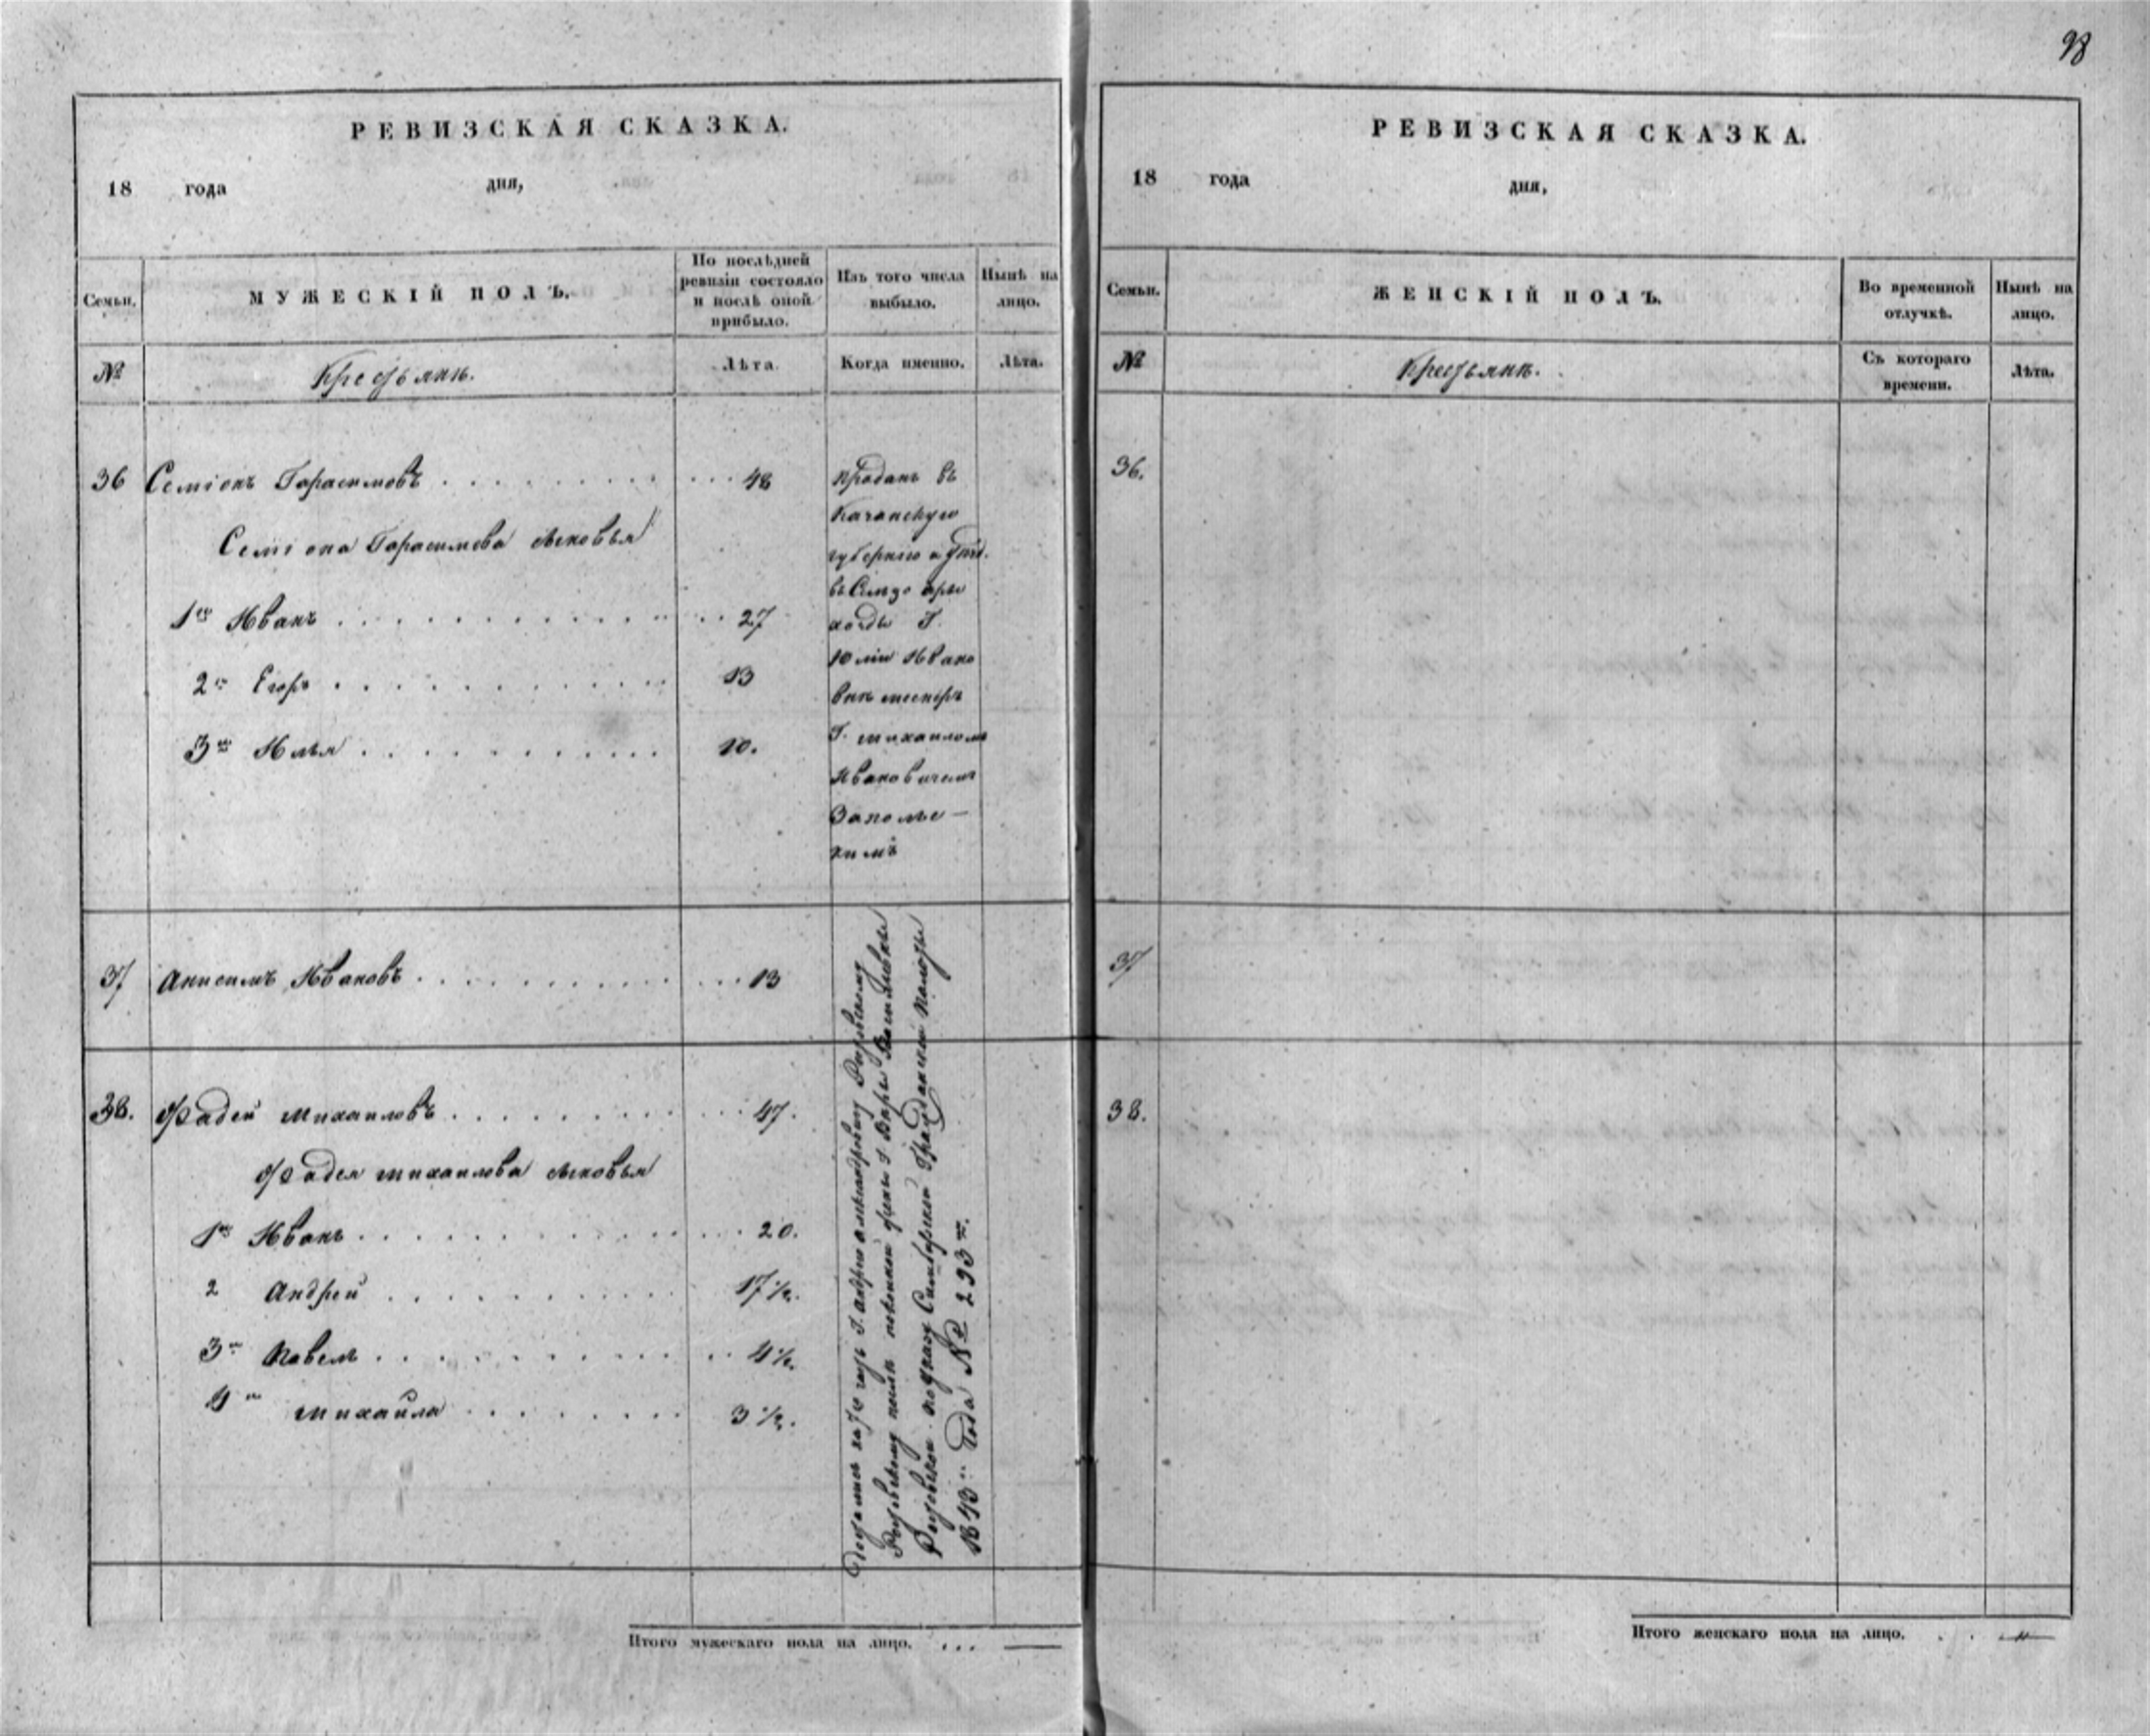 98
РЕВИЗСКАЯ СКАЗКА.
18 года дня,
Семьи. МУЖЕСКІЙ ПОЛЪ. По послѣдней ревизіи состояло и послѣ оной прибыло. Изъ того числа выбыло. Нынѣ на лицо.
№ Крестьянъ. Лѣта. Когда именно. Лѣта.
36 Семіонъ Гарасимовъ 48
Семіона Гарасимова сыновья
1й Иванъ 27
2й Егоръ 13
3й Илья 10.
проданъ въ
Казанскую
губернію
Г.
Г. Михаиломъ
Ивановичемъ
37 Анисимъ Ивановъ 13
38. Фадей Михаиловъ 47.
Фадея Михаилова сыновья
1й Иванъ 20.
2 Андрей 17 ½.
3й Павелъ 4 ½.
4й Михайла 3 ½.
Г. Андрею Александровичу
Г Варв Васильевне
Симбирской Гражданской Палаты
1843го Года № 293м.
Итого мужескаго пола на лицо. ... —
РЕВИЗСКАЯ СКАЗКА.
18 года дня,
Семьи. ЖЕНСКІЙ ПОЛЪ. Во временной отлучкѣ. Нынѣ на лицо.
№ Крестьянъ. Съ котораго времени. Лѣта.
36.
37
38.
Итого женскаго пола на лицо. . . —